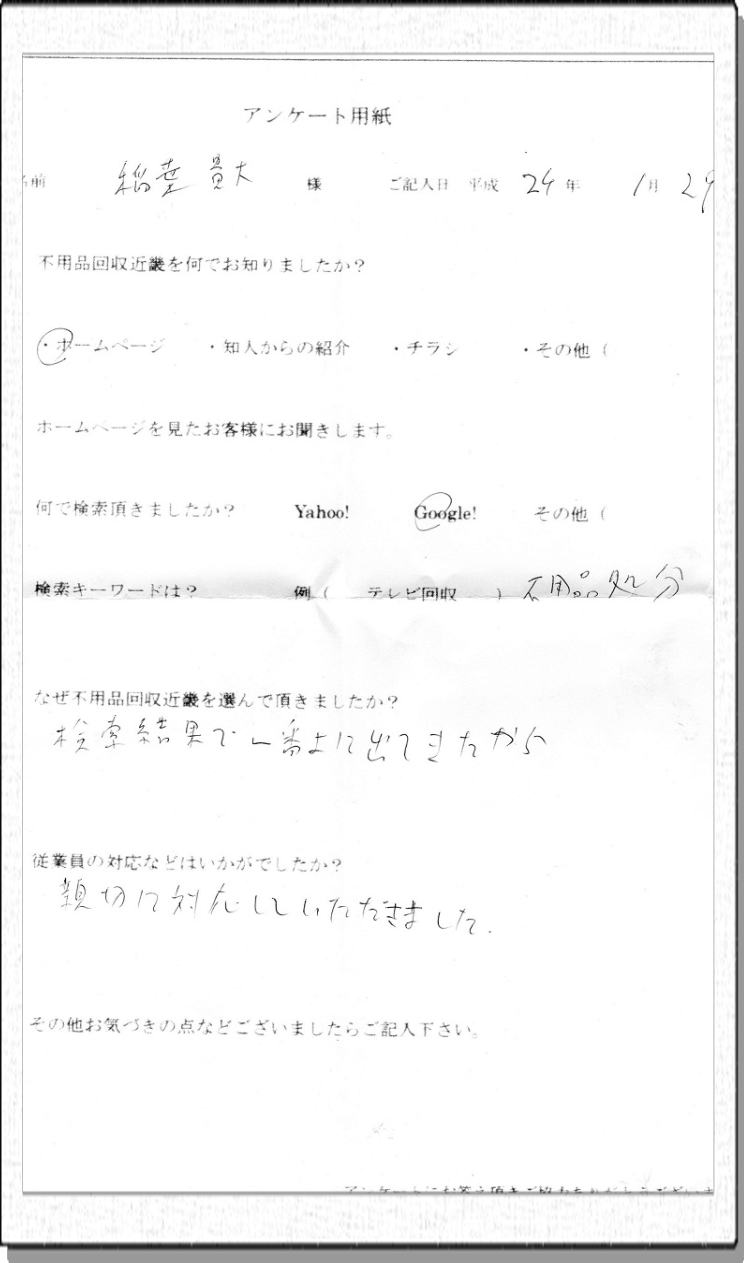 アンケート用紙
名前 稲葉 貴大 様 ご記入日 平成 24年 1月 29
不用品回収近畿を何でお知りましたか?
・ホームページ ・知人からの紹介 ・チラシ ・その他(
ホームページを見たお客様にお聞きします。
何で検索頂きましたか? Yahoo! Google! その他(
検索キーワードは? 例( テレビ回収 ) 不用品処分
なぜ不用品回収近畿を選んで頂きましたか?
検索結果で一番上に出てきたから
従業員の対応などはいかがでしたか?
親切に対応していただきました.
その他お気づきの点などございましたらご記入下さい。
アンケートにお答え頂きご協力ありがとうございま